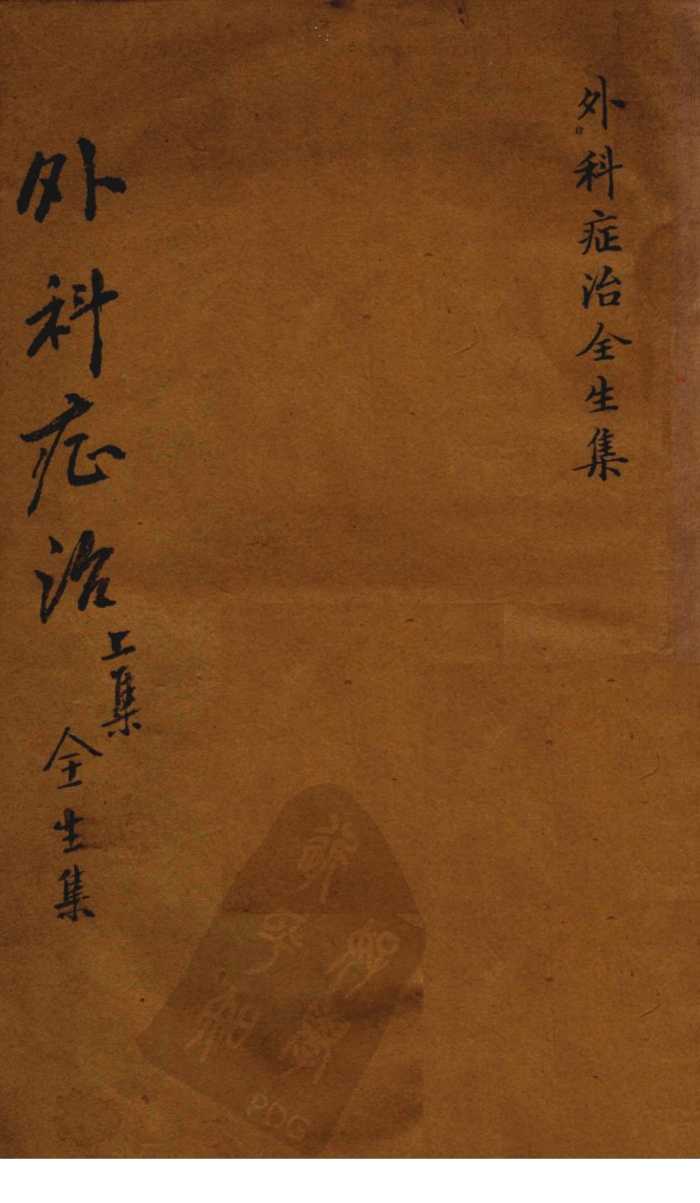 外科症治全生集
外科症治
上集
全生集
PDG